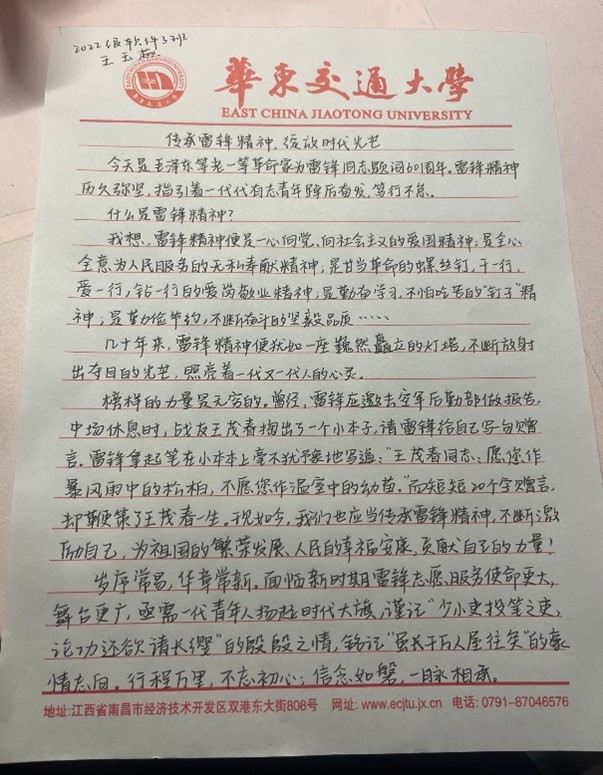 2022级软件3班
王玉
華東交通大學
EAST CHINA JIAOTONG UNIVERSITY
传承雷锋精神,绽放时代光芒
今天是毛泽东等老一等革命家为雷锋同志题词60周年。雷锋精神
历久弥坚,指引着一代代有志青年踔厉奋发,笃行不怠。
什么是雷锋精神?
我想,雷锋精神便是一心向党、向社会主义的爱国精神;是全心
全意为人民服务的无私奉献精神;是甘当革命的螺丝钉,干一行,
爱一行,钻一行的爱岗敬业精神;是勤奋学习,不怕吃苦的“钉子”精
神;是勤俭节约,不断奋斗的坚毅品质……
几十年来,雷锋精神便犹如一座巍然矗立的灯塔,不断放射
出夺目的光芒,照亮着一代又一代人的心灵。
榜样的力量是无穷的。曾经,雷锋应邀去空军后勤部做报告,
中场休息时,战友王茂春掏出了一个小本子,请雷锋给自己写句赠
言。雷锋拿起笔在小本本上毫不犹豫地写道:“王茂春同志:愿您作
暴风雨中的松柏,不愿您作温室中的幼苗。”而短短20个字赠言,
却鞭策了王茂春一生。现如今,我们也应当传承雷锋精神,不断激
励自己,为祖国的繁荣发展、人民的幸福安康,贡献自己的力量!
岁序常易,华章常新。面临新时期雷锋志愿服务使命更大,
舞台更广,亟需一代青年人扬起时代大旗,谨记“少小更投笔之吏,
论功还欲请长缨”的殷殷之情,铭记“虽长千万人吾往矣”的豪
情志向。行程万里,不忘初心;信念如磐,一脉相承。
地址:江西省南昌市经济技术开发区双港东大街808号 网址: www.ecjtu.jx.cn 电话: 0791-87046576